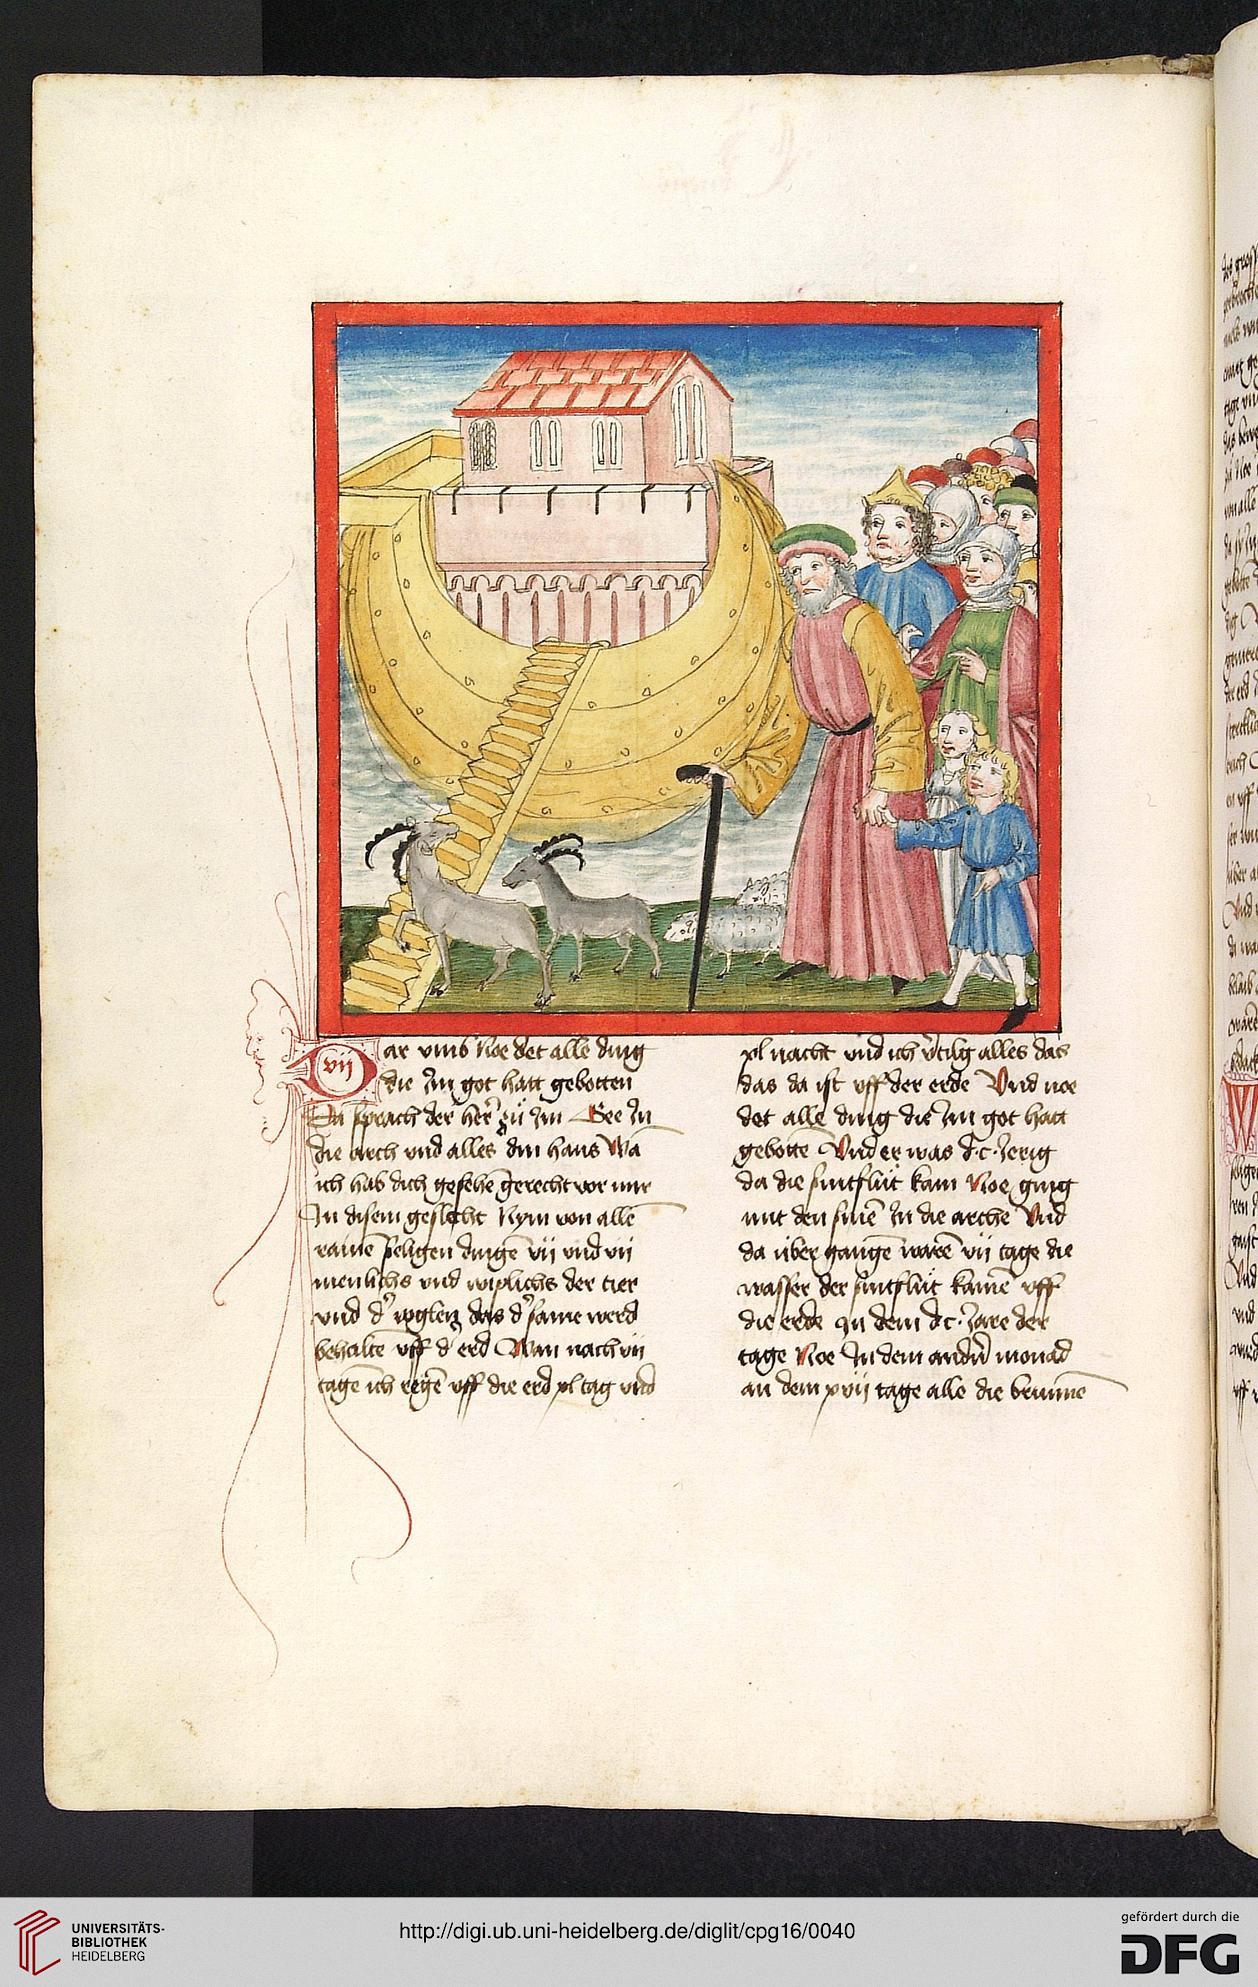 Dar vmb Noe det alle ding
vij
die Im got hatt gebotten
Da sprach der her zu Im Gee In
die arch vnd alles din haus Wā
ich hab dich gesehē gerecht vor mir
In disem geslecht Nym von allē
rainē seligen dingē vij vnd vij
menlichs vnd wiplichs der tier
vnd das d' same werd
behaltē vff d' erd Wan nach vij
tagē ich regē vff die erd xl tag vnd
xl nacht vnd ich v'tilg alles das
das da ist vff der erde Vnd noe
det alle ding die Im got hatt
gebottē Vnd er was d.c. Jerig
da die sintflůt kam Noe ging
mit den sinē In die arche Vnd
da über gangē warē vij tage die
wasser der sintflůt kamē vff
die erde In dem dc. Jare der
tage Noe In dem andn̄ monad
an dem xvij tage alle die brunnē
UNIVERSITÄTS-
BIBLIOTHEK
HEIDELBERG
http://digi.ub.uni-heidelberg.de/diglit/cpg16/0040
gefördert durch die
DFG